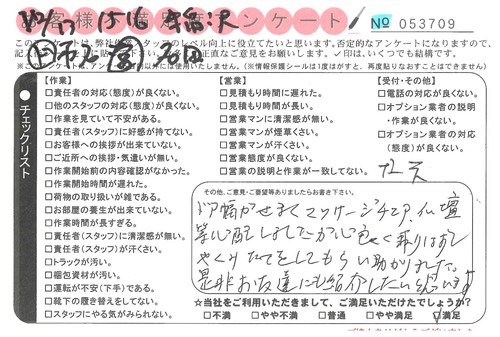 お客様満足度アンケート
№ 053709
このアンケートは、弊社作業スタッフのレベル向上に役立てたいと思います。否定的なアンケートになりますので、
ご意見をお願いします。✓印は、いくつでも結構です。
以外には使用いたしません。(情報保護シールは1度はがすと、再度貼りなおすことはできません)
チェックリスト
【作業】
□責任者の対応(態度)が良くない。
□他のスタッフの対応(態度)が良くない。
□作業を見ていて不安がある。
□責任者(スタッフ)に好感が持てない。
□お客様への挨拶が出来ていない。
□ご近所への挨拶・気遣いが無い。
□作業開始前の内容確認がなかった。
□作業開始時間が遅れた。
□荷物の取り扱いが雑である。
□お部屋の養生が出来ていない。
□作業時間が長すぎる。
□責任者(スタッフ)に清潔感が無い。
□責任者(スタッフ)が汗くさい。
□トラックが汚い。
□梱包資材が汚い。
□運転が不安(下手)である。
□靴下の履き替えをしてない。
□スタッフにやる気がみられない。
【営業】
□見積もり時間に遅れた。
□見積もり時間が長い。
□営業マンに清潔感が無い。
□営業マンが煙草くさい。
□営業マンが汗くさい。
□営業態度が良くない。
□営業の説明と作業が一致してない。
【受付・その他】
□電話の対応が良くない。
□オプション業者の説明
・作業が良くない。
□オプション業者の対応
(態度)が良くない。
その他、ご意見・ご要望等ありましたらお書き下さい。
ドア幅がせまくマッサージチェア、仏壇
等心配しましたが心良く取りはずし
やくみたてをしてもらい助かりました。
是非お友達にも紹介したいと思います
☆当社をご利用いただきまして、ご満足いただけたでしょうか?
□不満 □やや不満 □普通 □やや満足 ☑満足